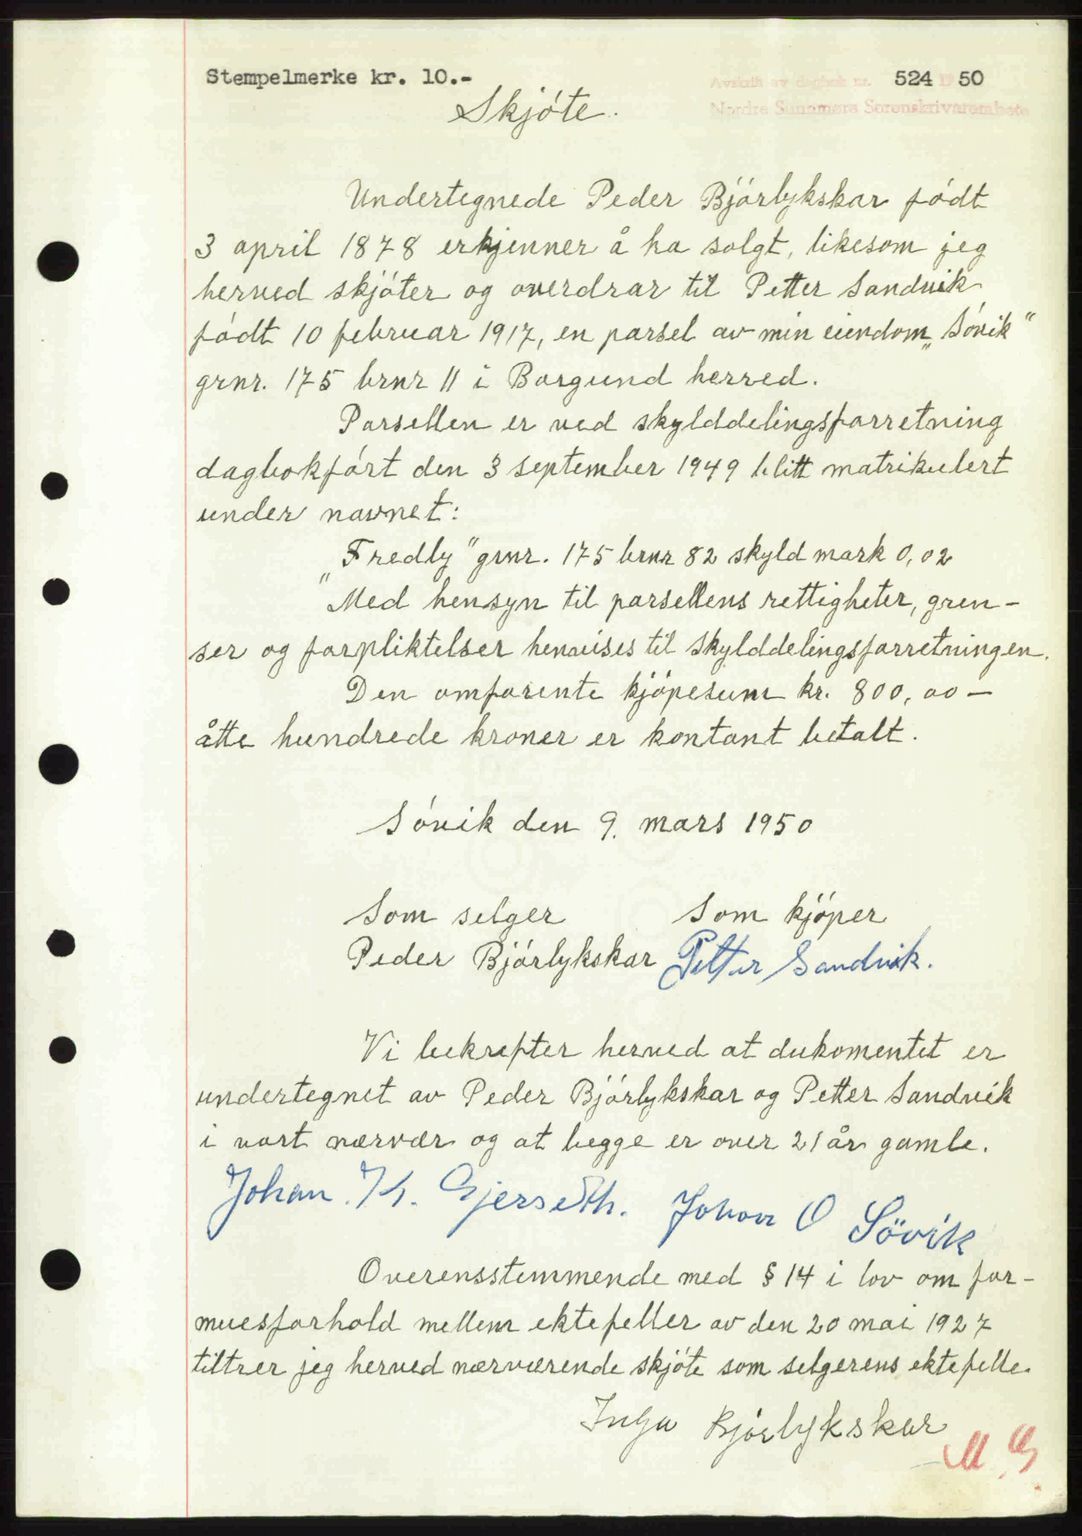 Stempelmerke kr. 10.-
Avskrift av dagbok nr. 524 19 50
Nordre Sunnmøre Sorenskriverembete
Skjóte.
Undertegnede Peder Bjórlykskar født
3 april 1878 erkjenner å ha solgt, likesom jeg
herved skjóter og overdrar til Petter Sandvik
født 10 februar 1917, en parsel av min eiendom „Sóvik"
grnr. 175 brnr 11 i Borgund herred.
Parsellen er ved skylddelingsforretning
dagbokfórt den 3 september 1949 blitt matrikulert
under navnet:
„Fredly" grnr. 175 brnr 82 skyld mark 0,02
Med hensyn til parsellens rettigheter, gren-
ser og forpliktelser henvises til skylddelingsforretningen.
Den omforente kjópesum kr. 800,00 —
åtte hundrede kroner er kontant betalt.
Sóvik den 9. mars 1950
Som selger Som kjóper
Peder Bjórlykskar Petter Sandvik.
Vi bekrefter herved at dokumentet er
undertegnet av Peder Bjórlykskar og Petter Sandvik
i vort nærvær og at begge er over 21 år gamle.
Johan. K. Gjerseth. Johan O Sövik
Overensstemmende med § 14 i lov om for-
muesforhold mellem ektefeller av den 20 mai 1927
tiltrer jeg herved nærværende skjóte som selgerens ektefelle.
Inga Bjórlykskar
M G